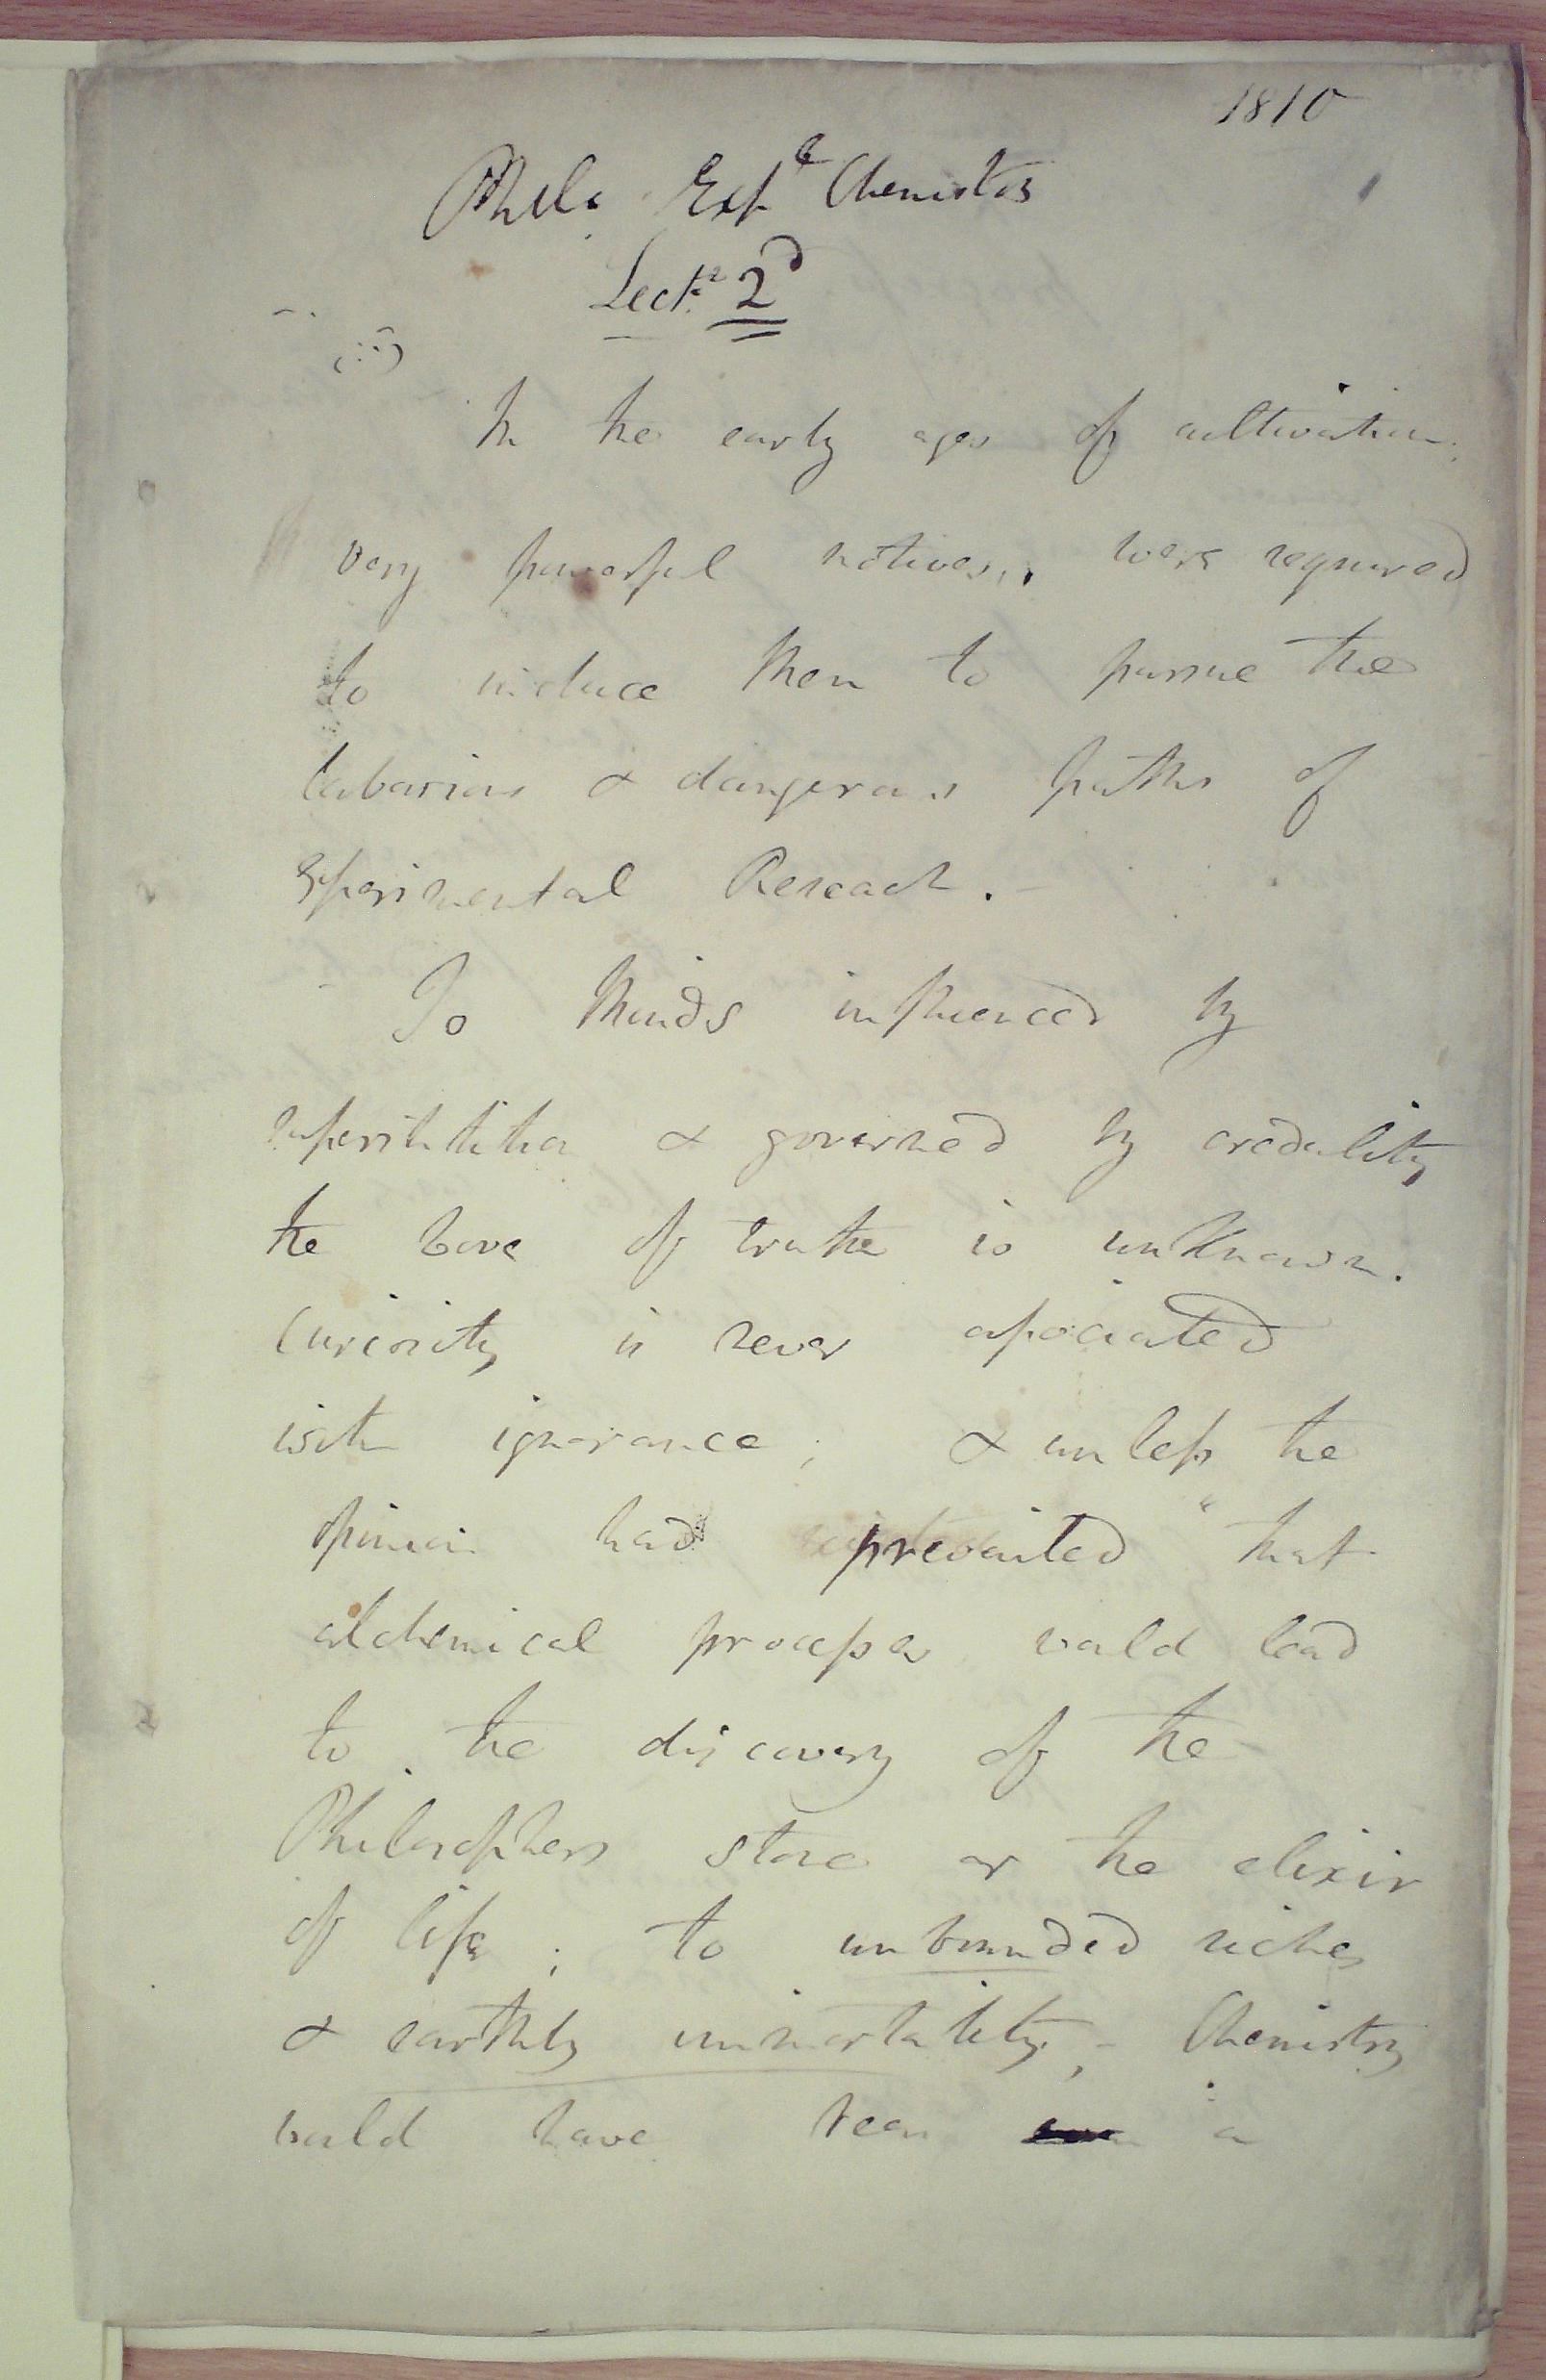 1810
1
Phil. Expl Chemistry
Lect.r 2d
In the early ages of cultivation,
very powerful motives, were required
to induce Men to pursue the
laborious & dangerous paths of
Experimental Reseach. -
- To Minds influenced by
superstition & governed by credulity
the Love of truth is unknown.
Curiosity is never associated
with ignorance; & unless the
opinion had prevailed "that
alchemical processes would lead
to the discovery of the
Philosophers stone or the elixir
of life; to unbounded riches
& earthly immortality, - Chemistry
would have been a